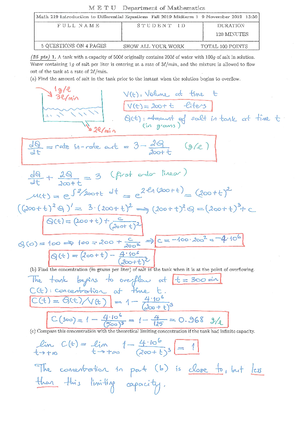 M E T U   Department of Mathematics
Math 219 Introduction to Differential Equations Fall 2019 Midterm 1 9 November 2019 13:30
FULL NAME STUDENT ID DURATION
120 MINUTES
5 QUESTIONS ON 4 PAGES SHOW ALL YOUR WORK TOTAL 100 POINTS
1. A tank with a capacity of 500ℓ originally contains 200ℓ of water with 100g of salt in solution.
Water containing 1g of salt per liter is entering at a rate of 3ℓ/min, and the mixture is allowed to flow
out of the tank at a rate of 2ℓ/min.
(a) Find the amount of salt in the tank prior to the instant when the solution begins to overflow.
1g/ℓ
3ℓ/min
2ℓ/min
V(t): Volume at time t
V(t) = 200+t liters
Q(t): amount of salt in tank at time t
(in grams)
dQ/dt = rate in - rate out = 3 - 2Q/(200+t)
dQ/dt + 2Q/(200+t) = 3 (first order linear)
μ(t) = e^(∫2/(200+t) dt) = e^(2 ln(200+t)) = (200+t)²
((200+t)² Q)' = 3·(200+t)² ⟹ (200+t)² Q = (200+t)³ + c
Q(t) = (200+t) + c/(200+t)²
Q(0) = 100 ⟹ 100 = 200 + c/200² ⟹ c = -100·200² = -4·10⁶
Q(t) = (200+t) - 4·10⁶/(200+t)²
(b) Find the concentration (in grams per liter) of salt in the tank when it is at the point of overflowing.
The tank begins to overflow at t = 300 min
C(t): concentration at time t.
C(t) = Q(t)/V(t) = 1 - 4·10⁶/(200+t)³
C(300) = 1 - 4·10⁶/(500)³ = 1 - 4/125 = 0.968 g/ℓ
(c) Compare this concentration with the theoretical limiting concentration if the tank had infinite capacity.
lim t→+∞ C(t) = lim t→+∞ 1 - 4·10⁶/(200+t)³ = 1
The concentration in part (b) is close to, but less
than this limiting capacity.